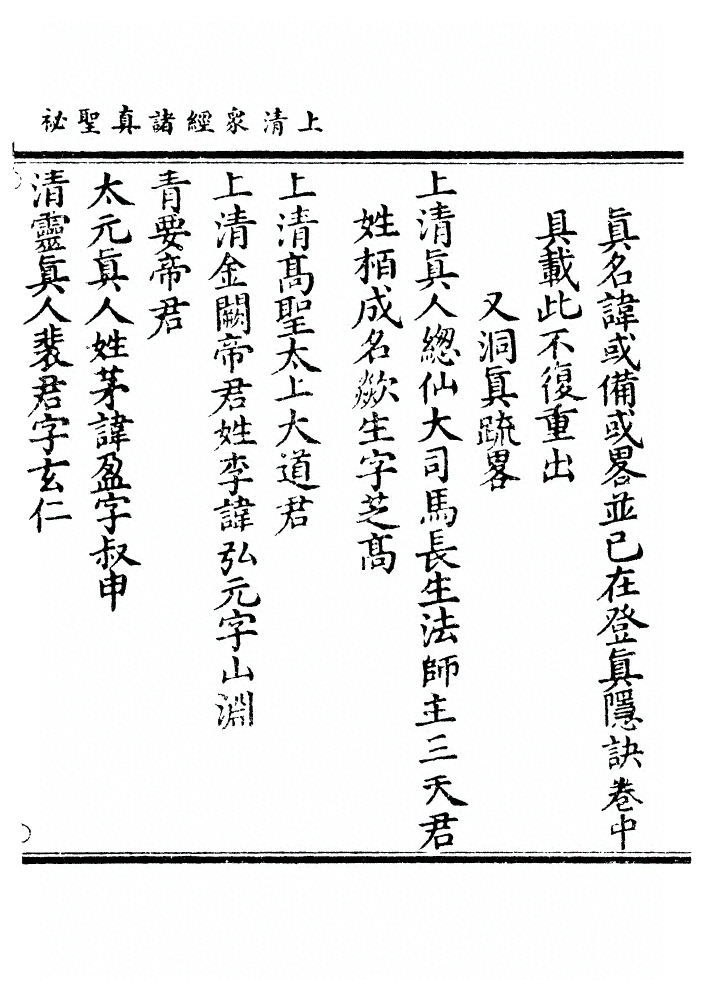 上清衆經諸真聖祕
眞名諱或備或畧並已在登眞隱訣卷中
具載此不復重出
又洞眞䟽畧
上清眞人緫仙大司馬長生法師主三天君
姓栢成名欻生字芝髙
上清髙聖太上大道君
上清金闕帝君姓李諱弘元字山淵
青要帝君
太元眞人姓茅諱盈字叔申
清靈眞人裴君字玄仁